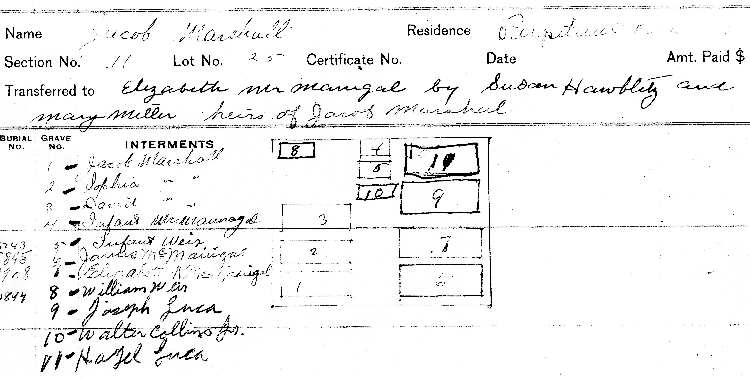 Name Jacob Marshall Residence
Section No. 11 Lot No. 25 Certificate No. Date Amt. Paid $
Transferred to Elizabeth McManigal by Susan Hawblitz and
Mary Miller heirs of Jacob Marshal
BURIAL NO. GRAVE NO. INTERMENTS
1 - Jacob Marshall
2 - Sophia " "
3 - David " "
4 - Infant McMannagal
5 - Infant Weir
6 - James McManigal
7 - Elizabeth
8 - William Weir
9 - Joseph Luca
10 - Walter Collins Jr.
11 - Hazel Luca
8 4 11
5
10 9
3
2 7
1 6